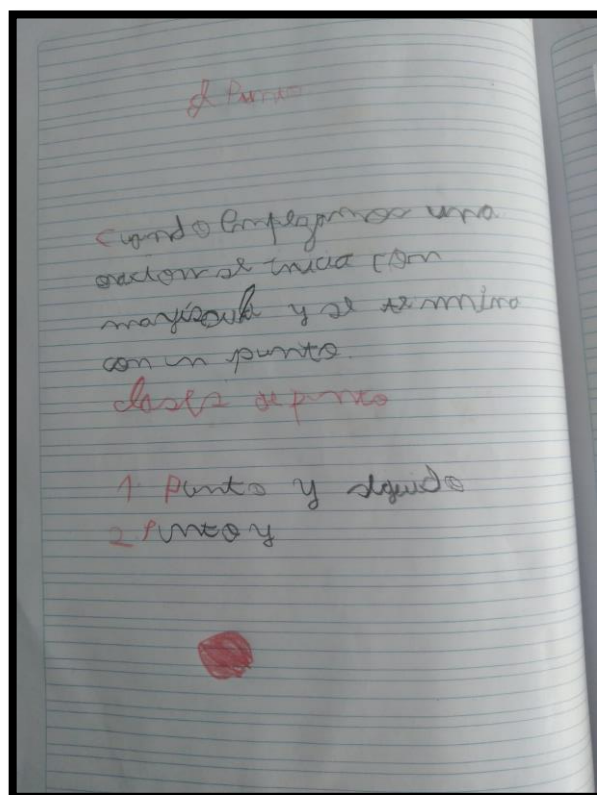 el Punto
Cuando Empezamos una
oracion se inicia con
mayúscula y se termina
con un punto.
clases de punto
1. punto y seguido
2. Punto y